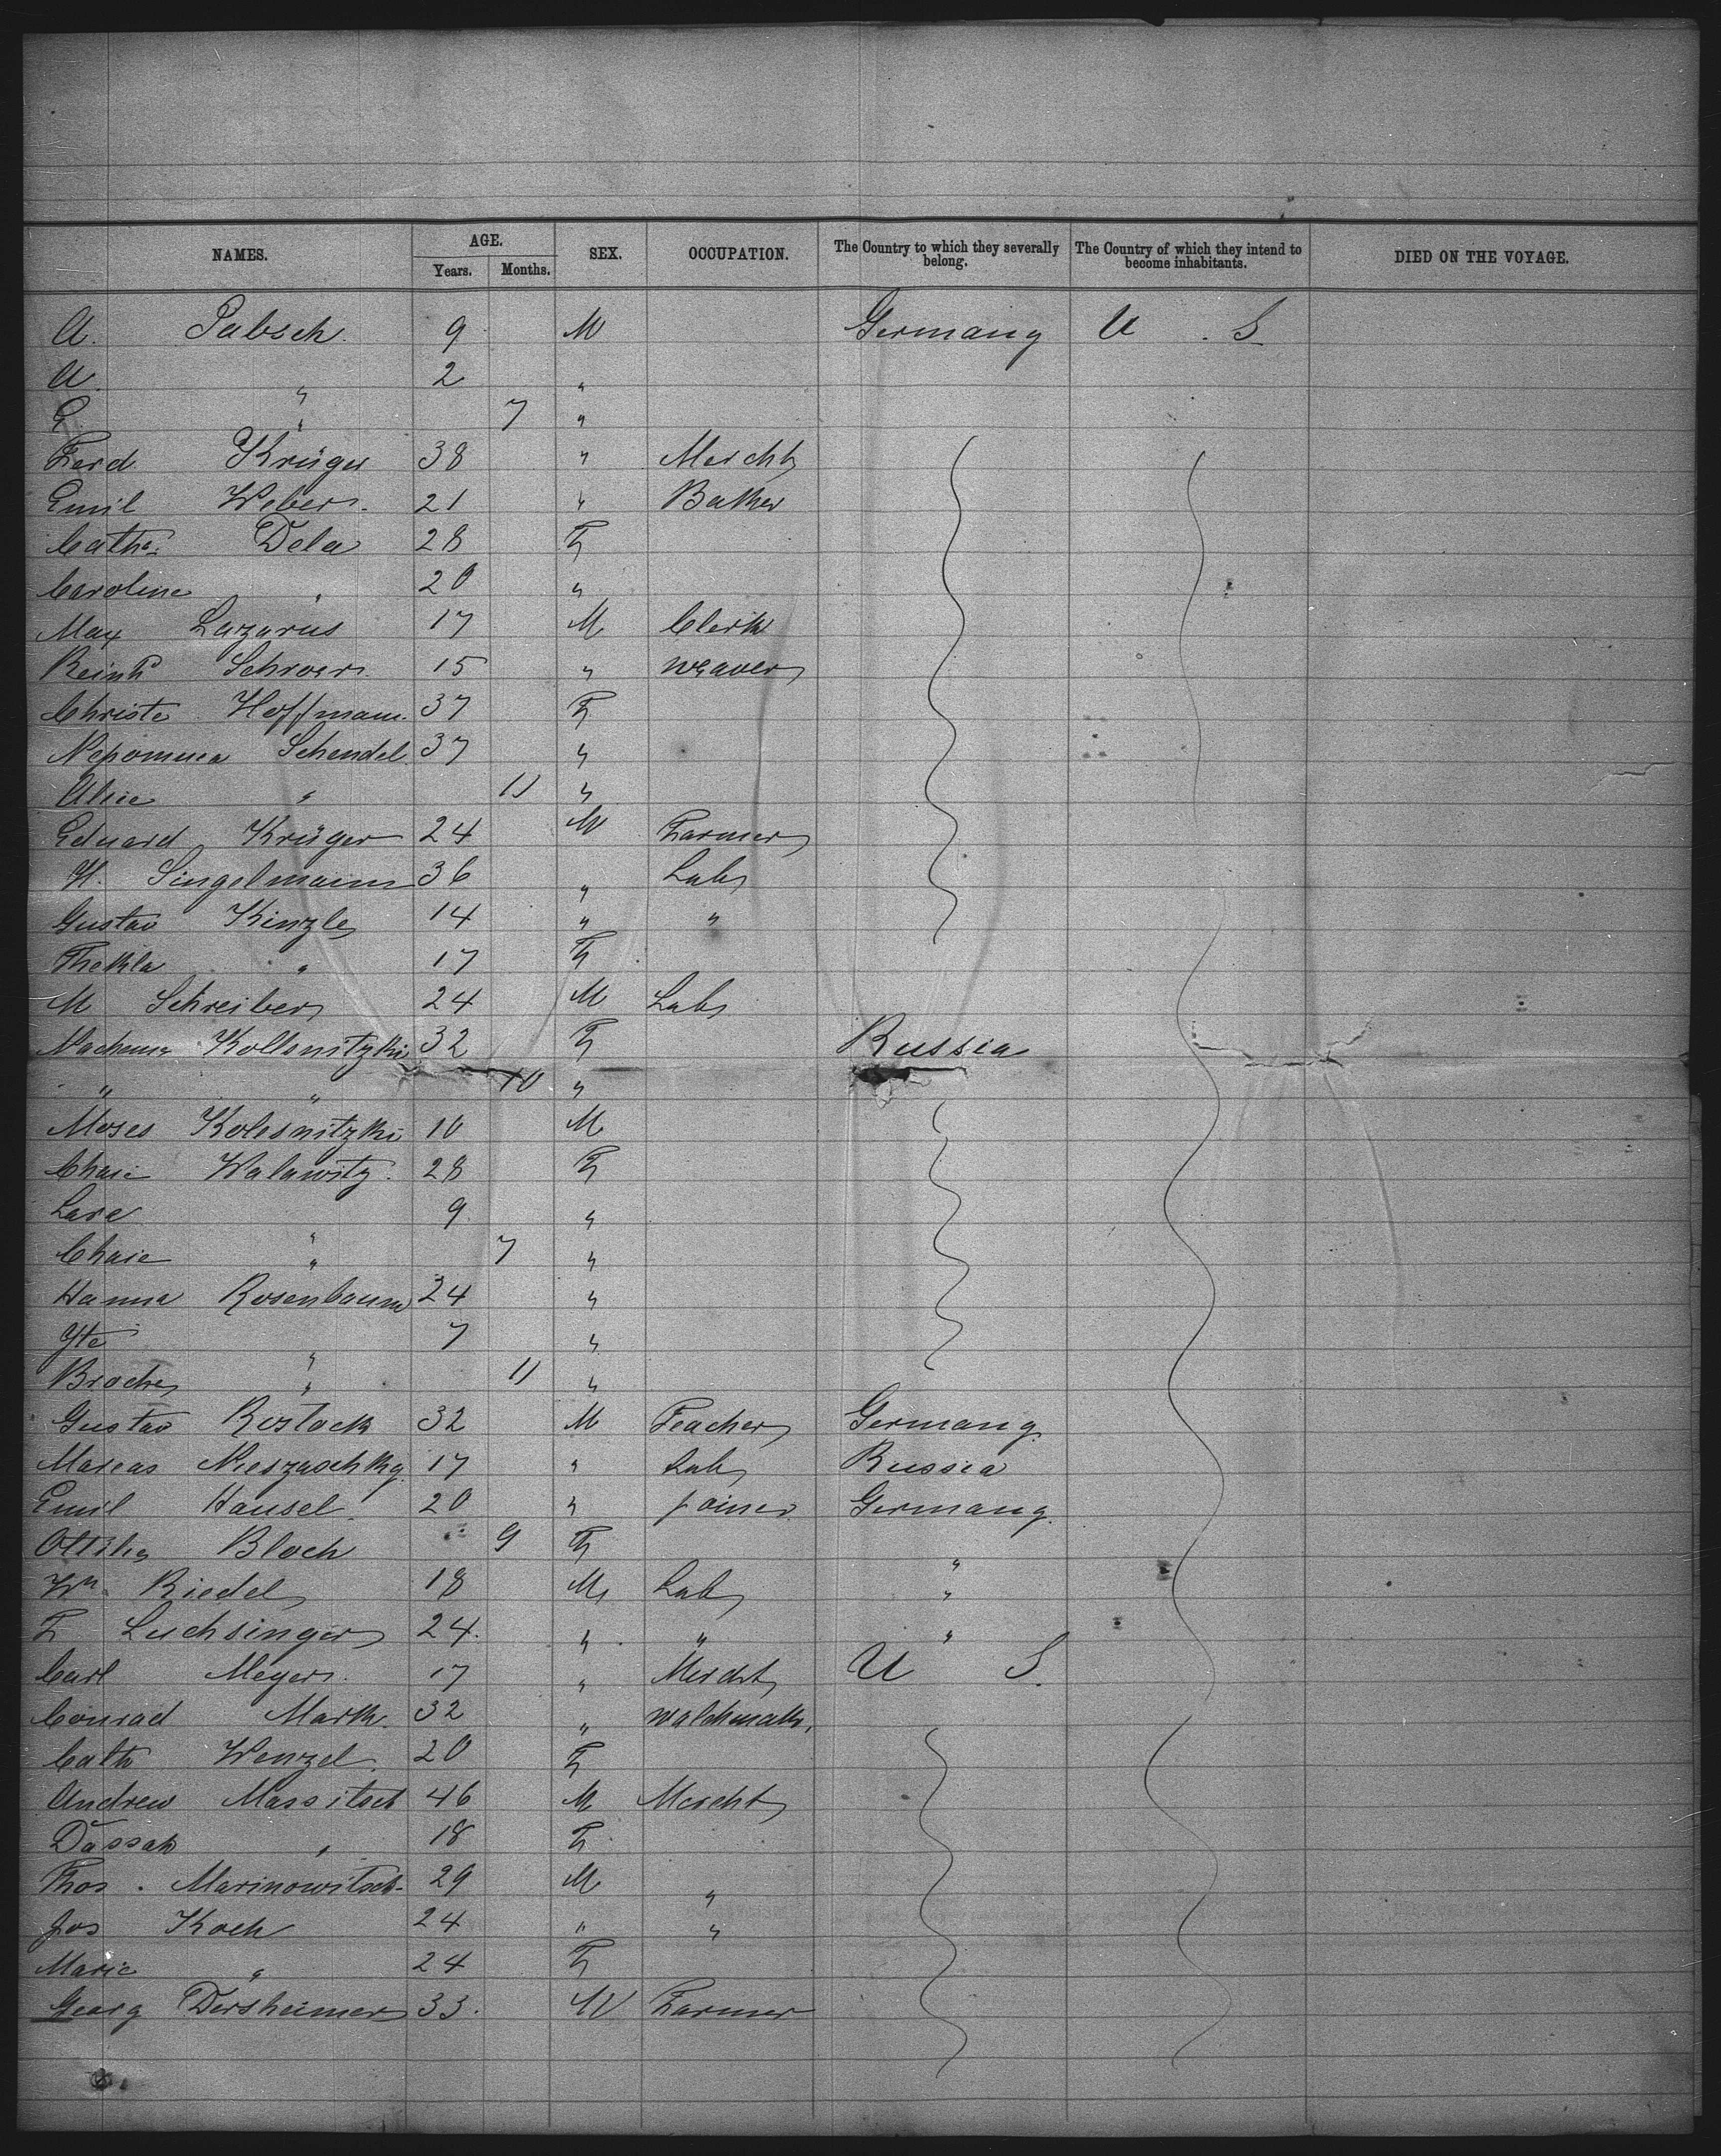 NAMES. AGE. SEX. OCCUPATION. The Country to which they severally belong. The Country of which they intend to become inhabitants. DIED ON THE VOYAGE.
Years. Months.
A. Pabsch. 9 M Germany U. S.
A. " 2 "
G. " 7 "
Ferd Krüger 38 " Mercht
Emil Weber. 21 " Baker
Cathe. Dela 28 F
Caroline " 20 "
Max Lazarus 17 M Clerk
Reinh Schroers 15 " weaver
Christe Hoffmann. 37 F
Nepomuca Schendel. 37 "
Alsie " 11 "
Eduard Krüger 24 M Farmer
H. Singelmann 36 " Lab
Gustav Kinzle 14 " "
Thekla " 17 F
M Schreiber 24 M Lab
Kollsnitzki 32 F Russia
" " 10 "
Moses Kolesnitzki 10 M
Chaie Walawitz. 28 F
Lare " 9 "
Chaie " 7 "
Hanna Rosenbaum 24 "
Yte " 7 "
Broche " 11 "
Gustav Rostock 32 M Teacher Germany.
Marcas Nieszaschky. 17 " Lab Russia
Emil Hausel. 20 " joiner Germany.
Bloch 9 F "
Wm Riedel 18 M Lab "
F Luchsinger 24. " " "
Carl Meyer. 17 " Mercht U S.
Conrad Mark. 32 "
Cath Wenzel. 20 F
Andrew Massitsch 46 M Mercht
Dassah " 18 F
Thos. Marinowitsch 29 M "
Jos Koch 24 " "
Marie " 24 F
Georg Dersheimer 33. M Farmer